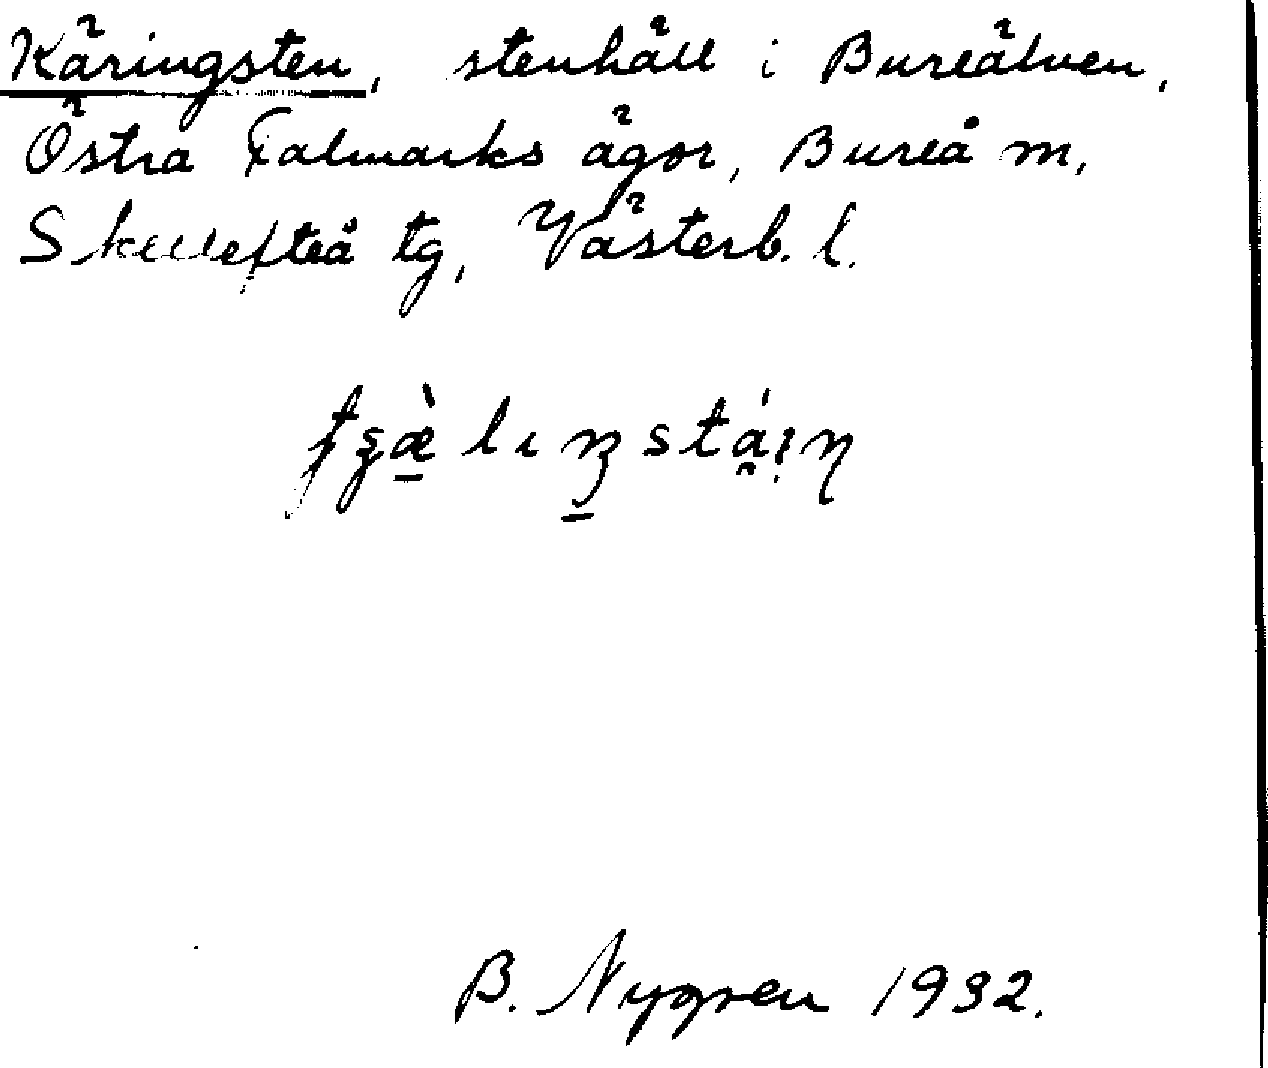 Käringsten, stenhäll i Bureälven,
Östra Falmarks ägor, Bureå m,
Skellefteå tg, Västerb. l.
B. Nygren 1932.